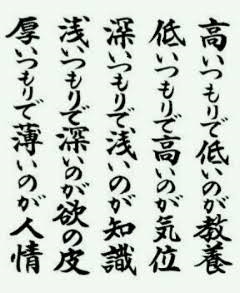 高いつもりで低いのが教養
低いつもりで高いのが気位
深いつもりで浅いのが知識
浅いつもりで深いのが欲の皮
厚いつもりで薄いのが人情